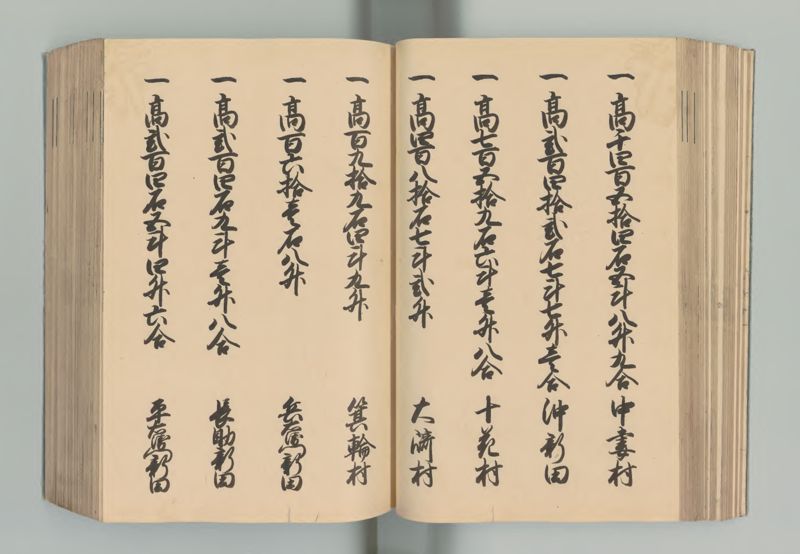 一 高千四百五拾四石五斗八升九合 中妻村
一 高弐百四拾弐石七斗七升壱合 沖新田
一 高七百五拾九石六斗壱升八合 十花村
一 高四百八拾石七斗弐升 大崎村
一 高百九拾九石四斗九升 箕輪村
一 高百六拾壱石八升 兵庫新田
一 高弐百四石九斗壱升八合 長助新田
一 高弐百四石五斗四升六合 平右衛門新田